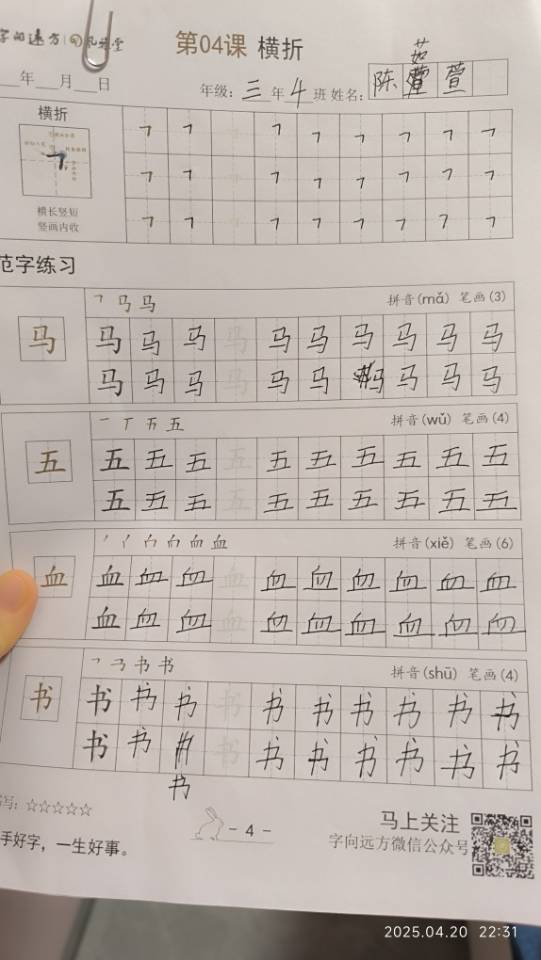 字向远方
第04课 横折
年 月 日 年级：三年4班 姓名：陈 茹 萱
横折
㇕ ㇕ ㇕ ㇕ ㇕ ㇕ ㇕ ㇕ ㇕
㇕ ㇕ ㇕ ㇕ ㇕ ㇕ ㇕ ㇕ ㇕
横长竖短
竖画内收
㇕ ㇕ ㇕ ㇕ ㇕ ㇕ ㇕ ㇕ ㇕
范字练习
㇕ 马 马 拼音(mǎ) 笔画(3)
马 马 马 马 马 马 马 马 马 马 马
马 马 马 马 马 马 马 马 马 马
一 丅 五 五 拼音(wǔ) 笔画(4)
五 五 五 五 五 五 五 五 五 五 五
五 五 五 五 五 五 五 五 五 五
血 拼音(xiě) 笔画(6)
血 血 血 血 血 血 血 血 血 血 血
血 血 血 血 血 血 血 血 血 血
书 书 拼音(shū) 笔画(4)
书 书 书 书 书 书 书 书 书 书 书
书 书 书 书 书 书 书 书 书
书
写：☆☆☆☆☆
- 4 -
马上关注
手好字，一生好事。
字向远方微信公众号
2025.04.20 22:31